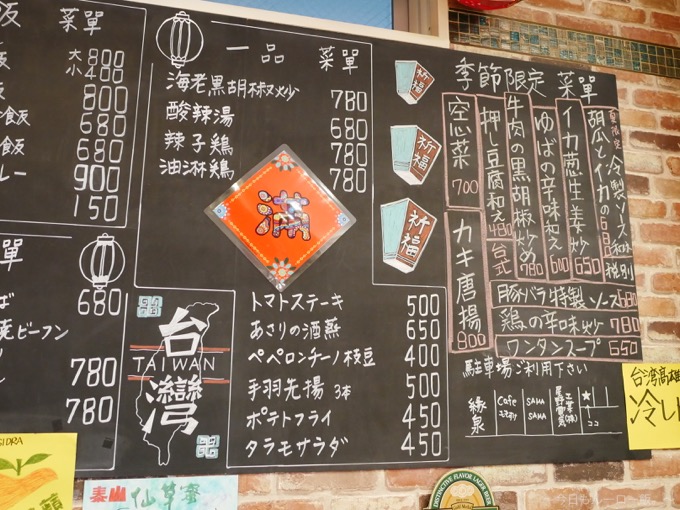 飯 菜單
飯 大 800
小 400
飯 800
飯 680
食飯 680
レー 900
150
一品 菜單
海老黒胡椒炒 780
酸辣湯 680
辣子鶏 780
油淋鶏 780
滿
祈福
祈福
祈福
季節限定 菜單
夏限定 冷製ソース
胡瓜とイカの
税別
イカ葱生姜炒 650
ゆばの辛味和え
牛肉の黒胡椒炒め 780
押し豆腐和え 480
台式
空心菜 700
カキ唐揚 800
豚バラ特製ソース 680
鶏の辛味炒 780
ワンタンスープ 550
單
ば 680
焼ビーフン
780
780
台灣
TAIWAN
トマトステーキ 500
あさりの酒蒸 650
ペペロンチーノ枝豆 400
手羽先揚 3本 500
ポテトフライ 450
タラモサラダ 450
駐車場ご利用下さい
縁泉
Cafe
SAHA
SAHA
★
ココ
台湾高雄
冷し
SIDRA
泰山 仙草蜜
DISTINCTIVE FLAVOR LAGER BEER